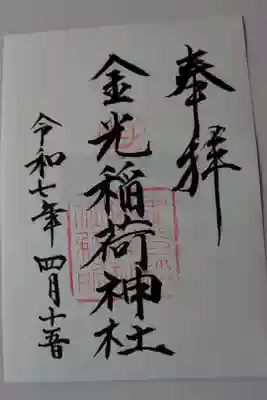 奉拝
金光稲荷神社
令和七年 四月十五日